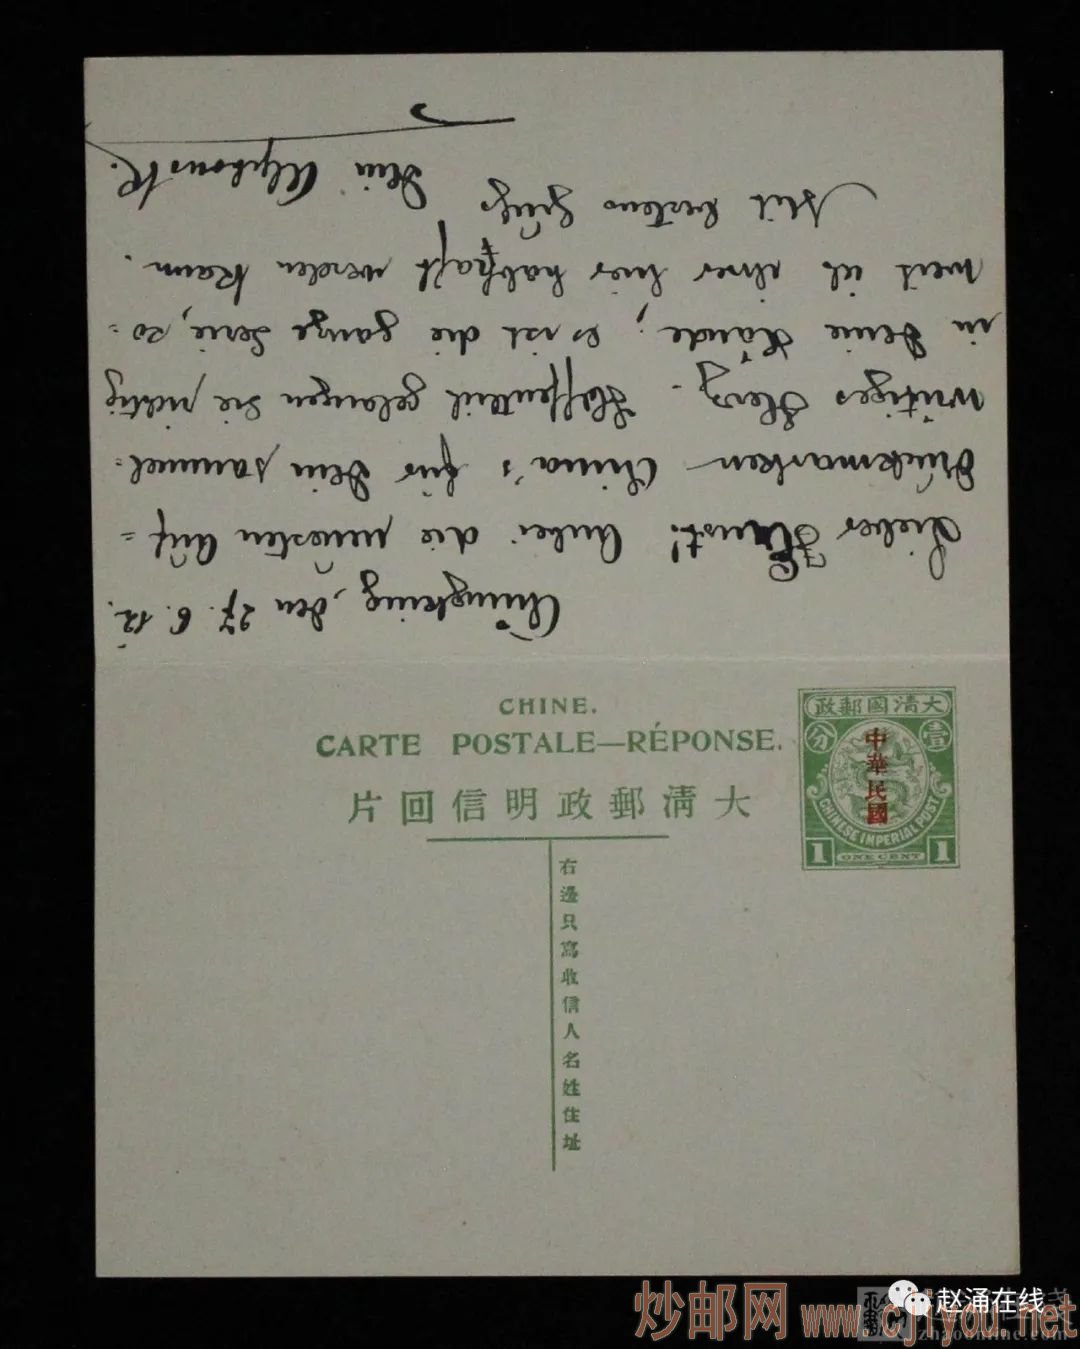 Chungking, den 27. 6. 12.
Lieber Ernst! Anbei die neuesten Auf=
druckmarken China's für Dein sammel=
wütiges Herz. Hoffentlich gelangen sie richtig
in Deine Hände; es ist die ganze Serie, so=
weit ich ihrer hier habhaft werden kann.
Mit bestens Gruß
Dein Alphons K.
CHINE.
CARTE POSTALE—RÉPONSE.
片回信明政郵清大
右邊只寫收信人名姓住址
政郵國清大
分 壹
中華民國
CHINESE IMPERIAL POST
1 ONE CENT 1
炒邮网 www.cjiyou.net
赵涌在线
zhaoonline.com